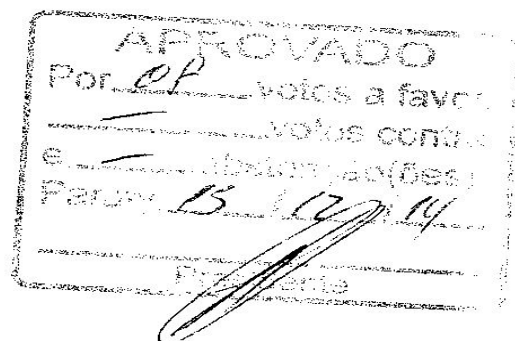 APROVADO
Por 08 votos a favor
— votos contra
e — abstenção(ões)
15 / 12 / 14
Presidente